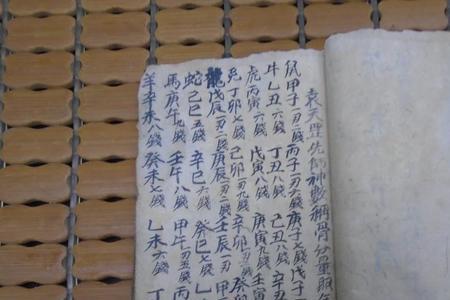 袁天罡先師神數稱骨分量服
鼠甲子一刃二錢 丙子一刃六錢 庚子七錢 戊子一刃
牛乙丑六錢 丁丑八錢 己丑八錢 辛丑
虎丙寅六錢 戊寅八錢 庚寅九錢 壬寅
兔丁卯七錢 己卯一刃九錢 辛卯一刃二錢 癸卯
龍戊辰一刃二錢 庚辰一刃二錢 壬辰一刃 甲
蛇己巳五錢 辛巳六錢 癸巳七錢 乙
馬庚午九錢 壬午八錢 甲午一刃五錢 丙
羊辛未八錢 癸未七錢 乙未六錢 丁